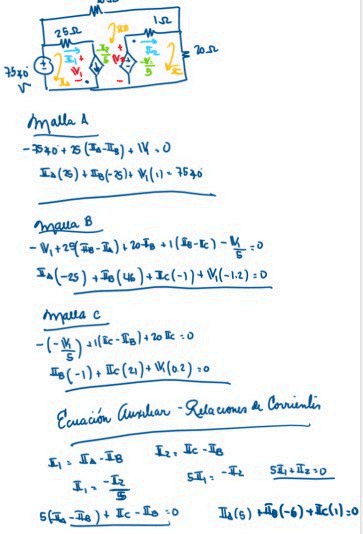 25Ω
1Ω
20Ω
75∠0° V
I₁
V₁
-I₂/5
-V₁/5
I₂
IA
IB
IC
Malla A
-75∠0° + 25(IA-IB) + V₁ = 0
IA(25) + IB(-25) + V₁(1) = 75∠0°
Malla B
-V₁ + 25(IB-IA) + 20IB + 1(IB-IC) - V₁/5 = 0
IA(-25) + IB(46) + IC(-1) + V₁(-1.2) = 0
Malla C
-(-V₁/5) + 1(IC-IB) + 20IC = 0
IB(-1) + IC(21) + V₁(0.2) = 0
Ecuación Auxiliar - Relaciones de Corrientes
I₁ = IA - IB I₂ = IC - IB
I₁ = -I₂/5 5I₁ = -I₂ 5I₁ + I₂ = 0
5(IA - IB) + IC - IB = 0 IA(5) + IB(-6) + IC(1) = 0